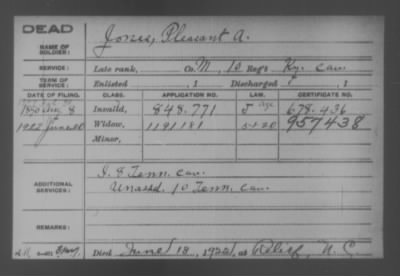 DEAD
NAME OF SOLDIER: Jones, Pleasant A.
SERVICE: Late rank, Co. M, 10 Reg't Ky. Cav.
TERM OF SERVICE: Enlisted , 1 Discharged , 1
DATE OF FILING. CLASS. APPLICATION NO. LAW. CERTIFICATE NO.
1890 Aug 8 Invalid, 848.771 678.436
1922 June 20 Widow, 1191181 5-1-20 957438
Minor,
ADDITIONAL SERVICES: I. 8 Tenn. Cav.
Unassd. 10 Tenn. Cav.
REMARKS:
Died June 18, 1922, at Relief, N.C.